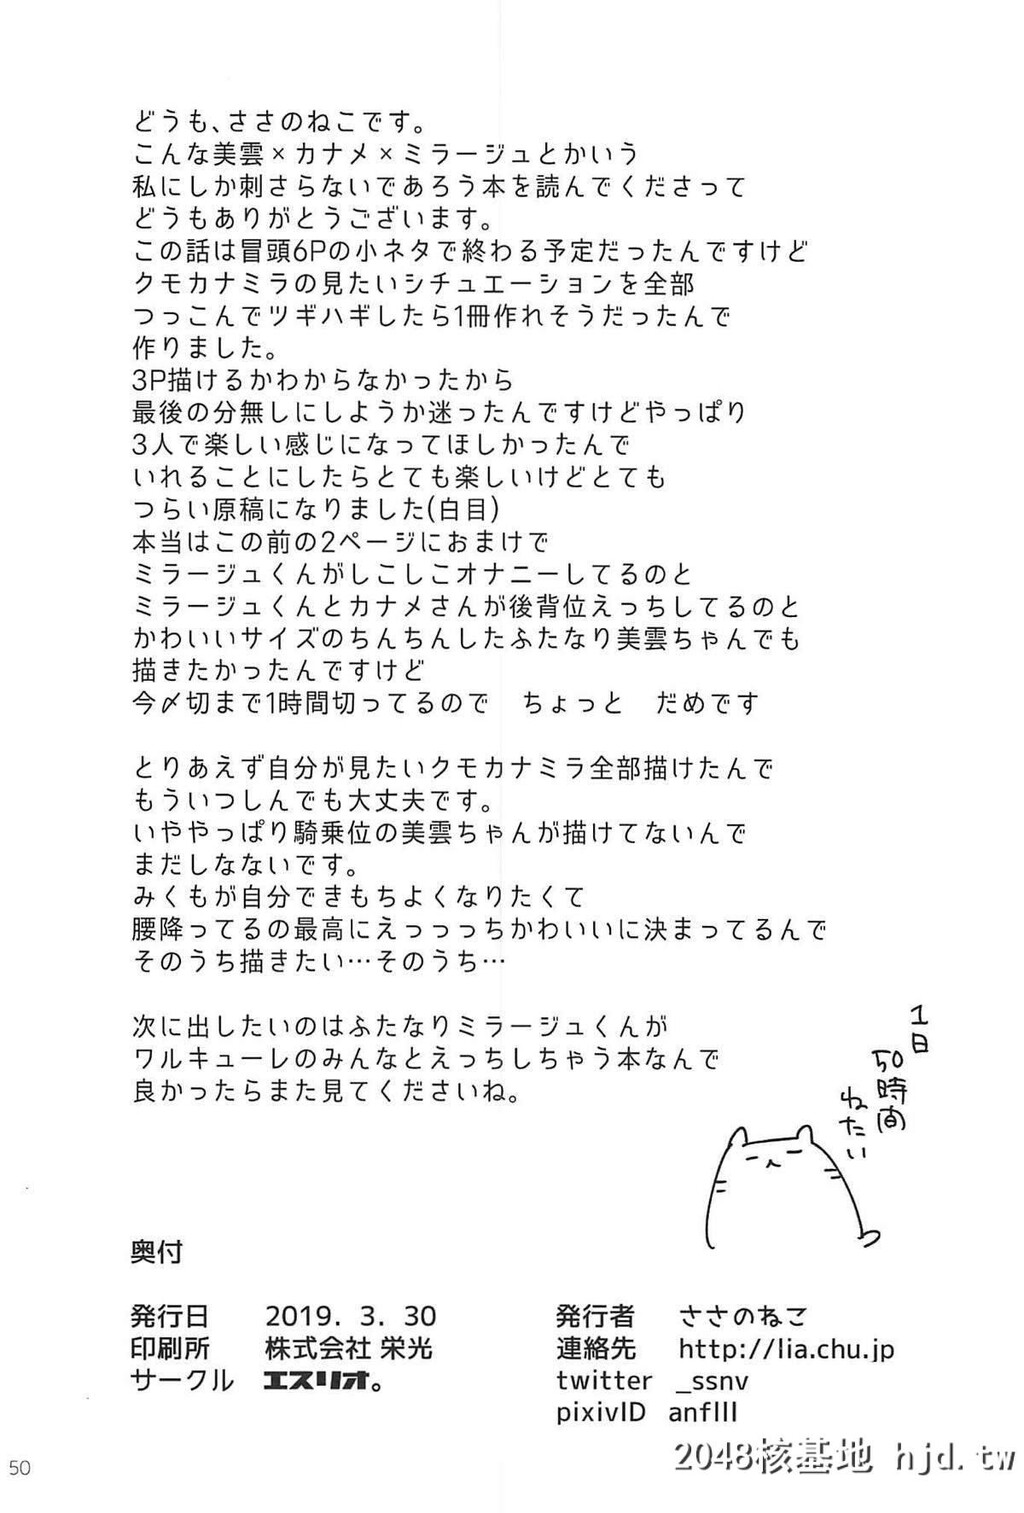 どうも､ささのねこです。
こんな美雲×カナメ×ミラージュとかいう
私にしか刺さらないであろう本を読んでくださって
どうもありがとうございます。
この話は冒頭6Pの小ネタで終わる予定だったんですけど
クモカナミラの見たいシチュエーションを全部
つっこんでツギハギしたら1冊作れそうだったんで
作りました。
3P描けるかわからなかったから
最後の分無しにしようか迷ったんですけどやっぱり
3人で楽しい感じになってほしかったんで
いれることにしたらとても楽しいけどとても
つらい原稿になりました(白目)
本当はこの前の2ページにおまけで
ミラージュくんがしこしこオナニーしてるのと
ミラージュくんとカナメさんが後背位えっちしてるのと
かわいいサイズのちんちんしたふたなり美雲ちゃんでも
描きたかったんですけど
今〆切まで1時間切ってるので　ちょっと　だめです
とりあえず自分が見たいクモカナミラ全部描けたんで
もういつしんでも大丈夫です。
いややっぱり騎乗位の美雲ちゃんが描けてないんで
まだしなないです。
みくもが自分できもちよくなりたくて
腰降ってるの最高にえっっっちかわいいに決まってるんで
そのうち描きたい…そのうち…
次に出したいのはふたなりミラージュくんが
ワルキューレのみんなとえっちしちゃう本なんで
良かったらまた見てくださいね。
1日
50時間
ねたい
奥付
発行日 2019. 3. 30
印刷所 株式会社 栄光
サークル エスリオ。
発行者 ささのねこ
連絡先 http://lia.chu.jp
twitter _ssnv
pixivID anflll
2048核基地 hjd.tw
50